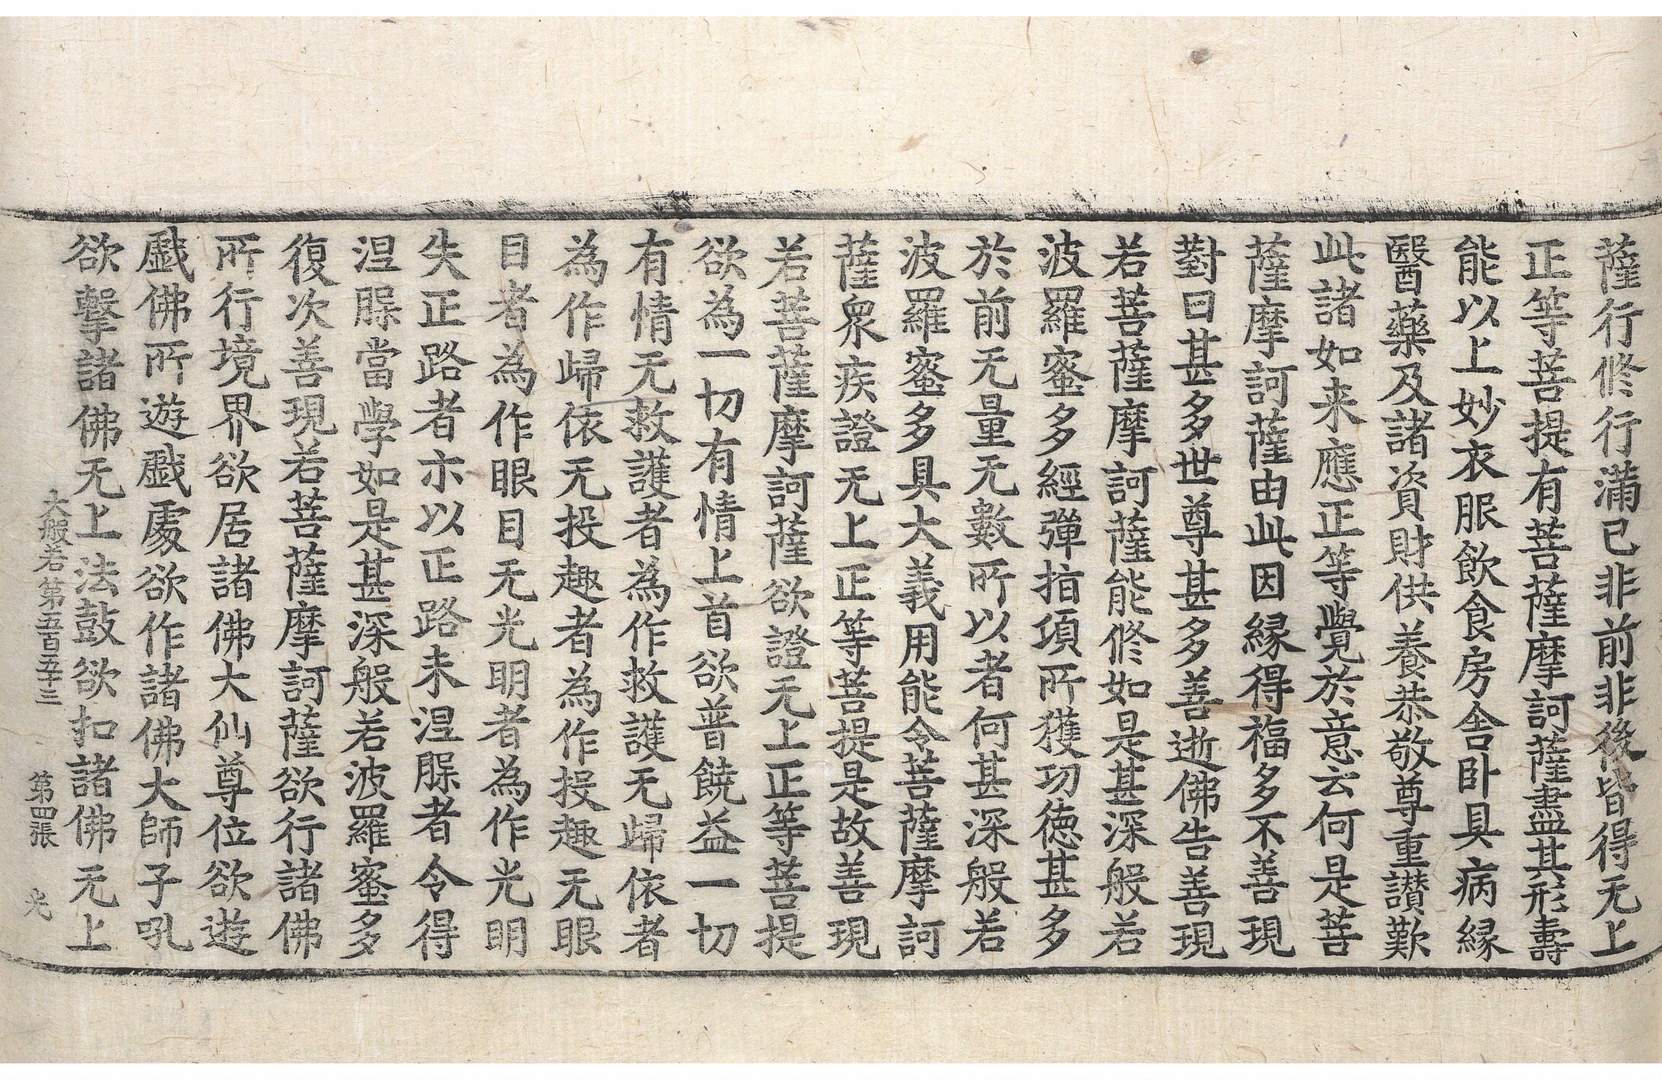 薩行修行滿已非前非後皆得无上
正等菩提有菩薩摩訶薩盡其形壽
能以上妙衣服飲食房舎卧具病縁
醫藥及諸資財供養恭敬尊重讃歎
此諸如来應正等覺於意云何是菩
薩摩訶薩由此因縁得福多不善現
對曰甚多世尊甚多善逝佛告善現
若菩薩摩訶薩能修如是甚深般若
波羅蜜多經彈指項所獲功德甚多
於前无量无數所以者何甚深般若
波羅蜜多具大義用能令菩薩摩訶
薩衆疾證无上正等菩提是故善現
若菩薩摩訶薩欲證无上正等菩提
欲為一切有情上首欲普饒益一切
有情无救護者為作救護无歸依者
為作歸依无投趣者為作投趣无眼
目者為作眼目无光明者為作光明
失正路者亦以正路未涅脲者令得
涅脲當學如是甚深般若波羅蜜多
復次善現若菩薩摩訶薩欲行諸佛
所行境界欲居諸佛大仙尊位欲遊
戯佛所遊戯處欲作諸佛大師子吼
欲擊諸佛无上法鼓欲扣諸佛无上
大般若第五百五十三　第四張　光